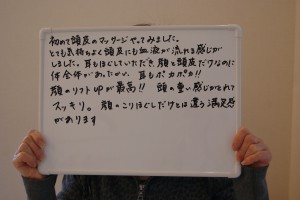 初めて頭皮のマッサージやってみました。
とても気持ちよく頭皮にも血液が流れる感じが
しました。耳もほぐしていただき、顔と頭皮だけなのに
体全体があたたかい、耳もポカポカ!!
顔のリフトupが最高!! 頭の重い感じがとれて
スッキリ。顔のこりほぐしだけとは違う満足感
があります